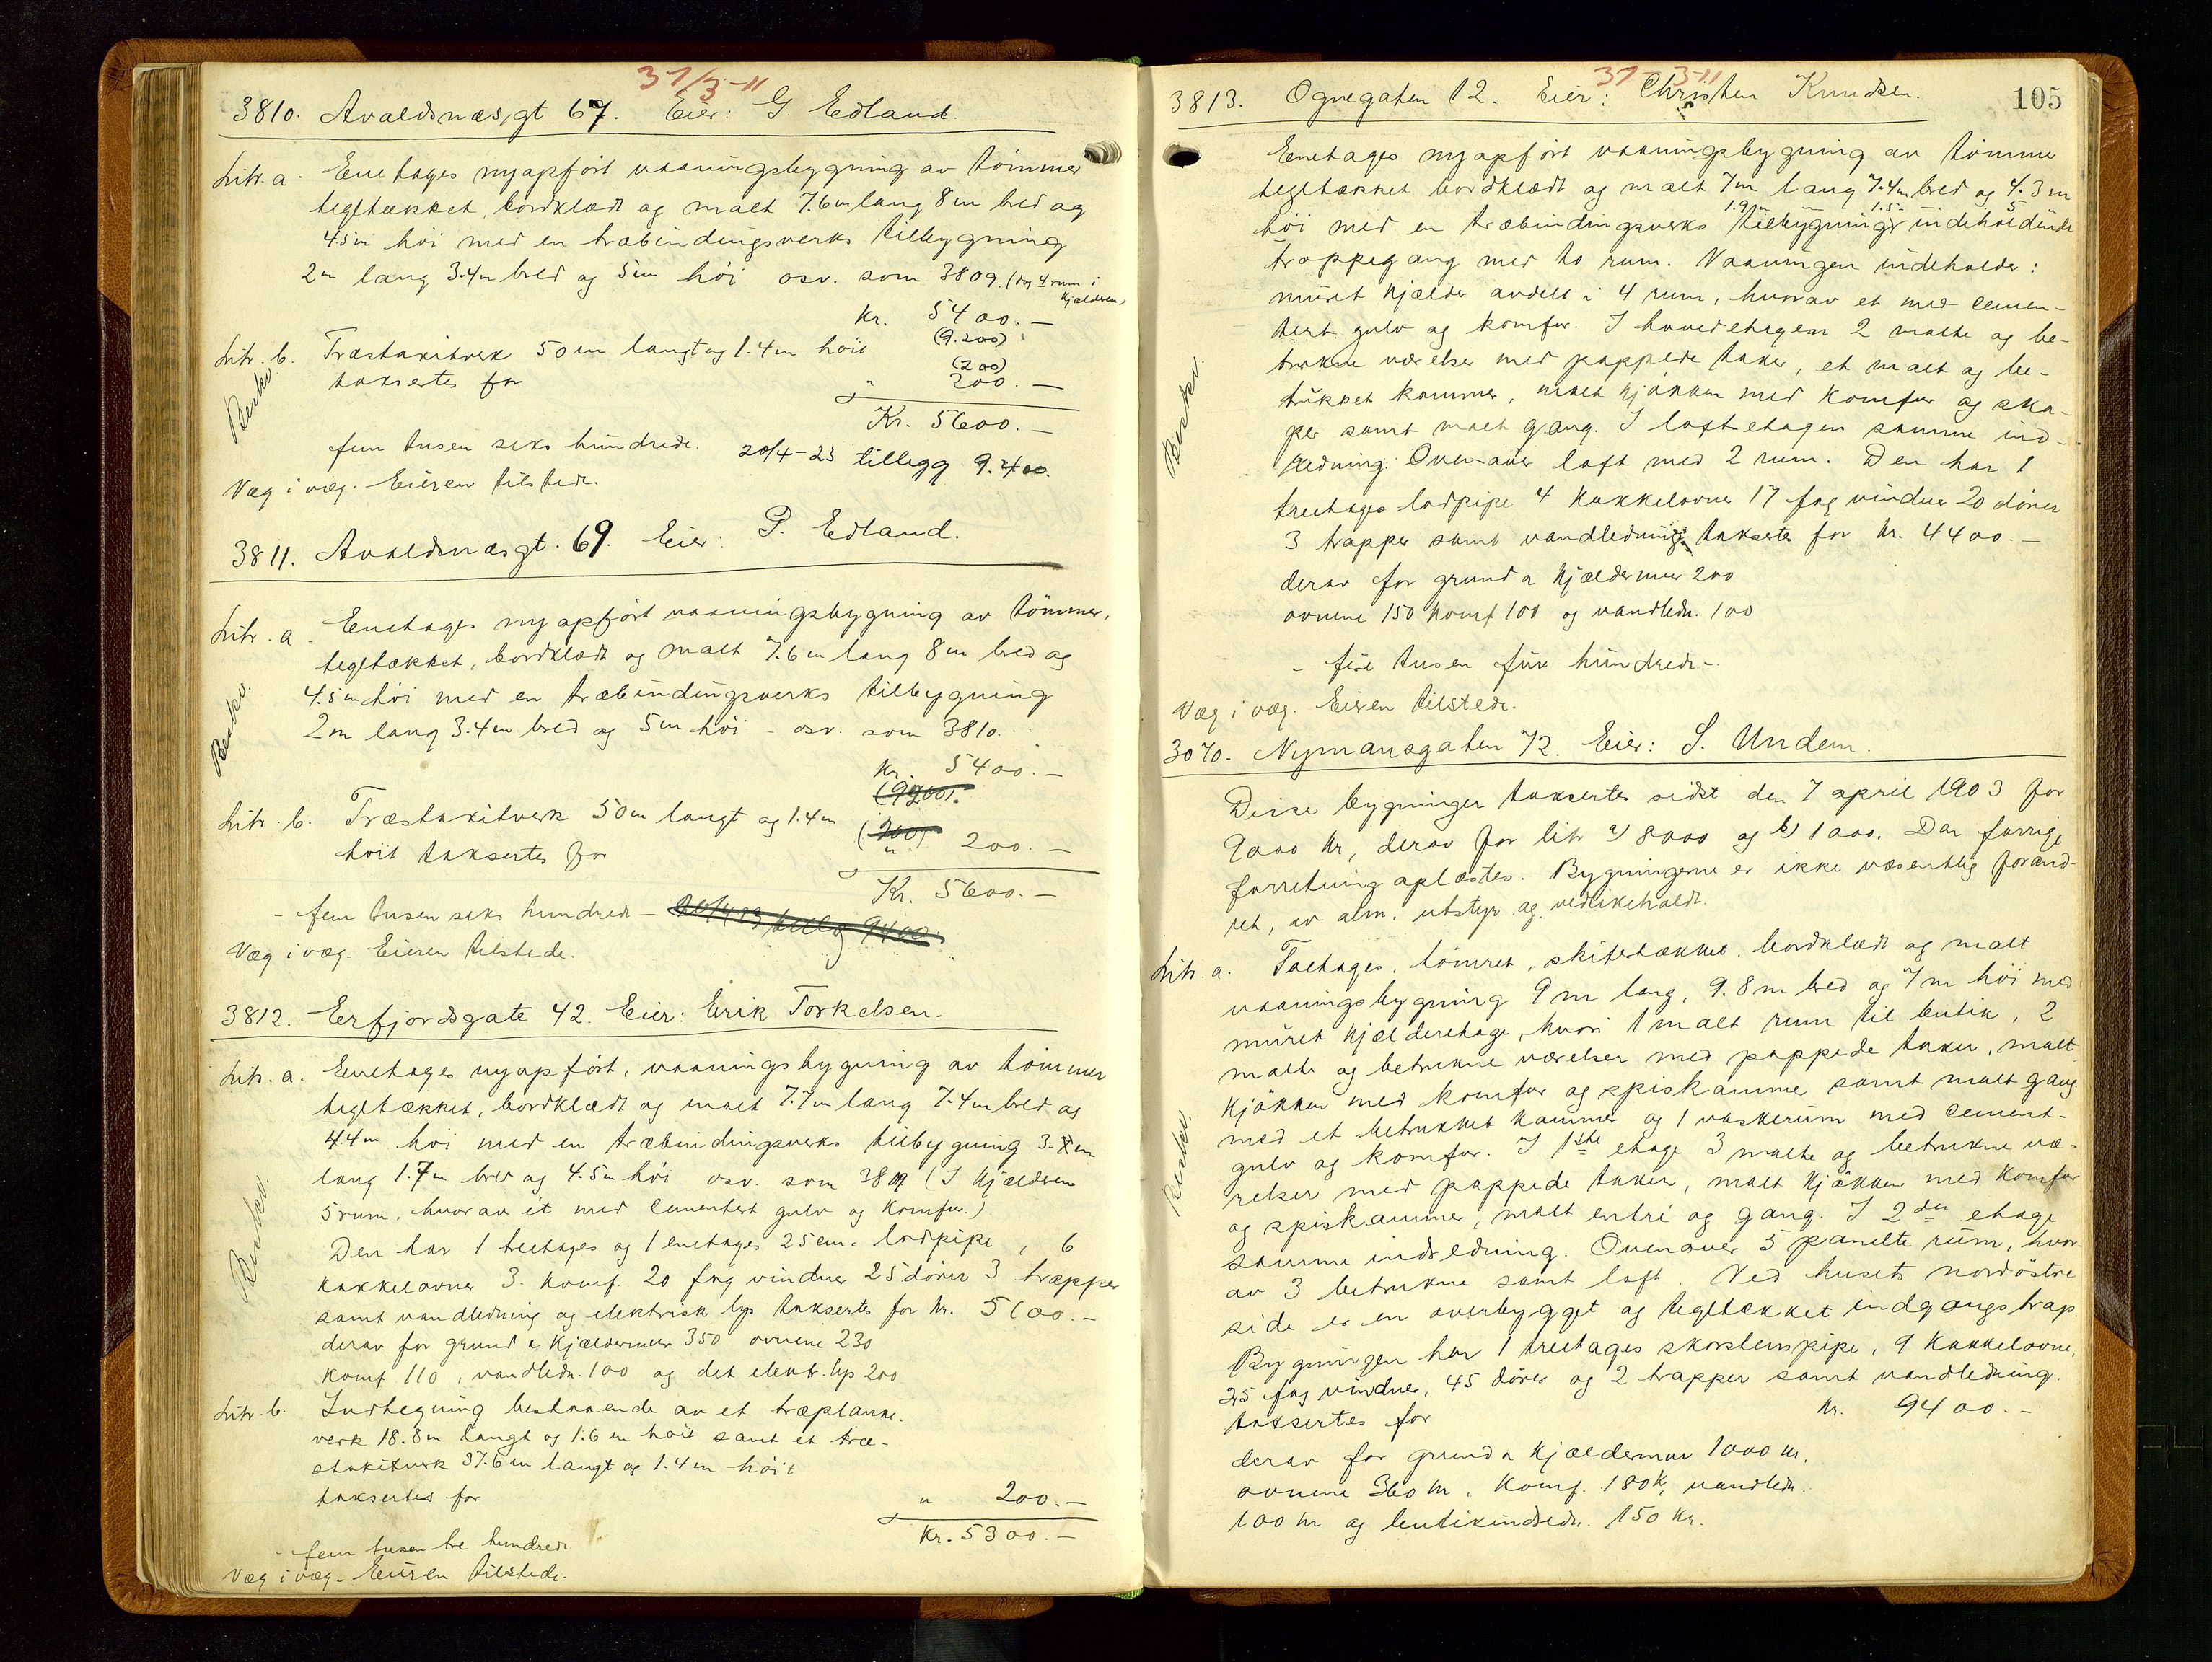 31/3-11
3810. Avaldsnæsgt 67. Eier: G. Edland.
Litr. a. Enetages nyopført vaaningsbygning av tømmer
tegltækket, bordklædt og malt 7.6 m lang 8 m bred og
4.5 m høi med en træbindingsverks tilbygning
2 m lang 3.4 m bred og 5 m høi osv. som 3809. (dog 4 rum i
kjælderen)
Kr. 5400.–
(9.200)
Litr. b. Træstakitverk 50 m langt og 1.4 m høit
(200)
taksertes for " 200.–
Beskv.
Kr. 5600.–
fem tusen seks hundrede. 20/4-23 tillegg 9.400.
Væg i væg. Eieren tilstede.
3811. Avaldsnæsgt. 69. Eier: P. Edland.
Litr. a. Enetages nyopført vaaningsbygning av tømmer,
tegltækket, bordklædt og malt 7.6 m lang 8 m bred og
4.5 m høi med en træbindingsverks tilbygning
2 m lang 3.4 m bred og 5 m høi – osv. som 3810.
Beskv.
Kr. 5400.–
(9200).
Litr. b. Træstakitverk 50 m langt og 1.4 m
(200)
høit taksertes for " 200.–
Kr. 5600.–
– fem tusen seks hundrede – 20/4 23 tillegg 9400.
Væg i væg. Eieren tilstede.
3812. Erfjordsgate 42. Eier: Erik Torkelsen.
Litr. a. Enetages nyopført, vaaningsbygning av tømmer
tegltækket, bordklædt og malt 7.7 m lang 7.4 m bred og
4.4 m høi med en træbindingsverks tilbygning 3. m
lang 1.7 m bred og 4.5 m høi osv. som 3809 (I kjælderen
5 rum, hvorav et med cementert gulv og komfur.)
Beskv.
Den har 1 treetages og 1 enetages 25 cm. lodpipe, 6
kakkelovner 3. komf. 20 fag vinduer 25 dører 3 trapper
samt vandledning og elektrisk lys taksertes for kr. 5100.–
derav for grund & kjældermur 350 ovnene 230
komf 110, vandledn. 100 og det elektr. lys 200
Litr. b. Indhegning bestaaende av et træplanke-
verk 18.8 m langt og 1.6 m høit samt et træ-
stakitverk 37.6 m langt og 1.4 m høit
taksertes for " 200.–
Kr. 5300.–
– fem tusen tre hundrede.
Væg i væg. Eieren tilstede.
105
31-3-11
3813. Ognegaten 12. Eier: Christen Knudsen.
Enetages nyopført vaaningsbygning av tømmer
tegltækket bordklædt og malt 7 m lang 7.4 m bred og 4.3 m
1.9 m 1.5 – 5
høi med en træbindingsverks tilbygning indeholdende
trappegang med to rum. Vaaningen indeholder:
muret kjælder avdelt i 4 rum, hvorav et med cemen-
tert gulv og komfur. I hovedetagen 2 malte og be-
trukne værelser med pappede taker, et malt og be-
trukket kammer, malt kjøkken med komfur og ska-
per samt malt gang. I loftetagen samme ind-
redning. Ovenover loft med 2 rum. Den har 1
Beskv.
treetages lodpipe 4 kakkelovne 17 fag vinduer 20 dører
3 trapper samt vandledning taksertes for kr. 4400.–
derav for grund & kjældermur 200
ovnene 150 komf 100 og vandledn. 100
– fire tusen fire hundrede –
Væg i væg. Eieren tilstede.
3070. Nymansgaten 72. Eier: S. Undem.
Disse bygninger taksertes sidst den 7 april 1903 for
9000 kr, derav for litr a) 8000 og b) 1000. Den forrige
forretning oplæstes. Bygningerne er ikke væsentlig forand-
ret, av alm. utstyr og vedlikeholdt.
Litr. a. Toetages, tømret, skifertækket, bordklædt og malt
vaaningsbygning 9 m lang, 9.8 m bred og 7 m høi med
muret kjælderetage, hvori 1 malt rum til butik, 2
malte og betrukne værelser med pappede taker, malt
kjøkken med komfur og spiskammer samt malt gang
med et betrukket kammer og 1 vaskerum med cement-
gulv og komfur. I 1ste etage 3 malte og betrukne væ-
relser med pappede taker, malt kjøkken med komfur
Beskv.
og spiskammer, malt entré og gang. I 2den etage
samme indredning. Ovenover 5 panelte rum, hvor-
av 3 betrukne samt loft. Ved husets nordøstre
side er en overbygget og tegltækket indgangstrap.
Bygningen har 1 treetages skorstenspipe, 9 kakkelovne,
25 fag vinduer, 45 dører og 2 trapper samt vandledning.
taksertes for kr. 9400.–
derav for grund & kjældermur 1000 kr.
ovnene 360 kr, komf. 180 k, vandledn.
100 kr og butikindredn. 150 kr.